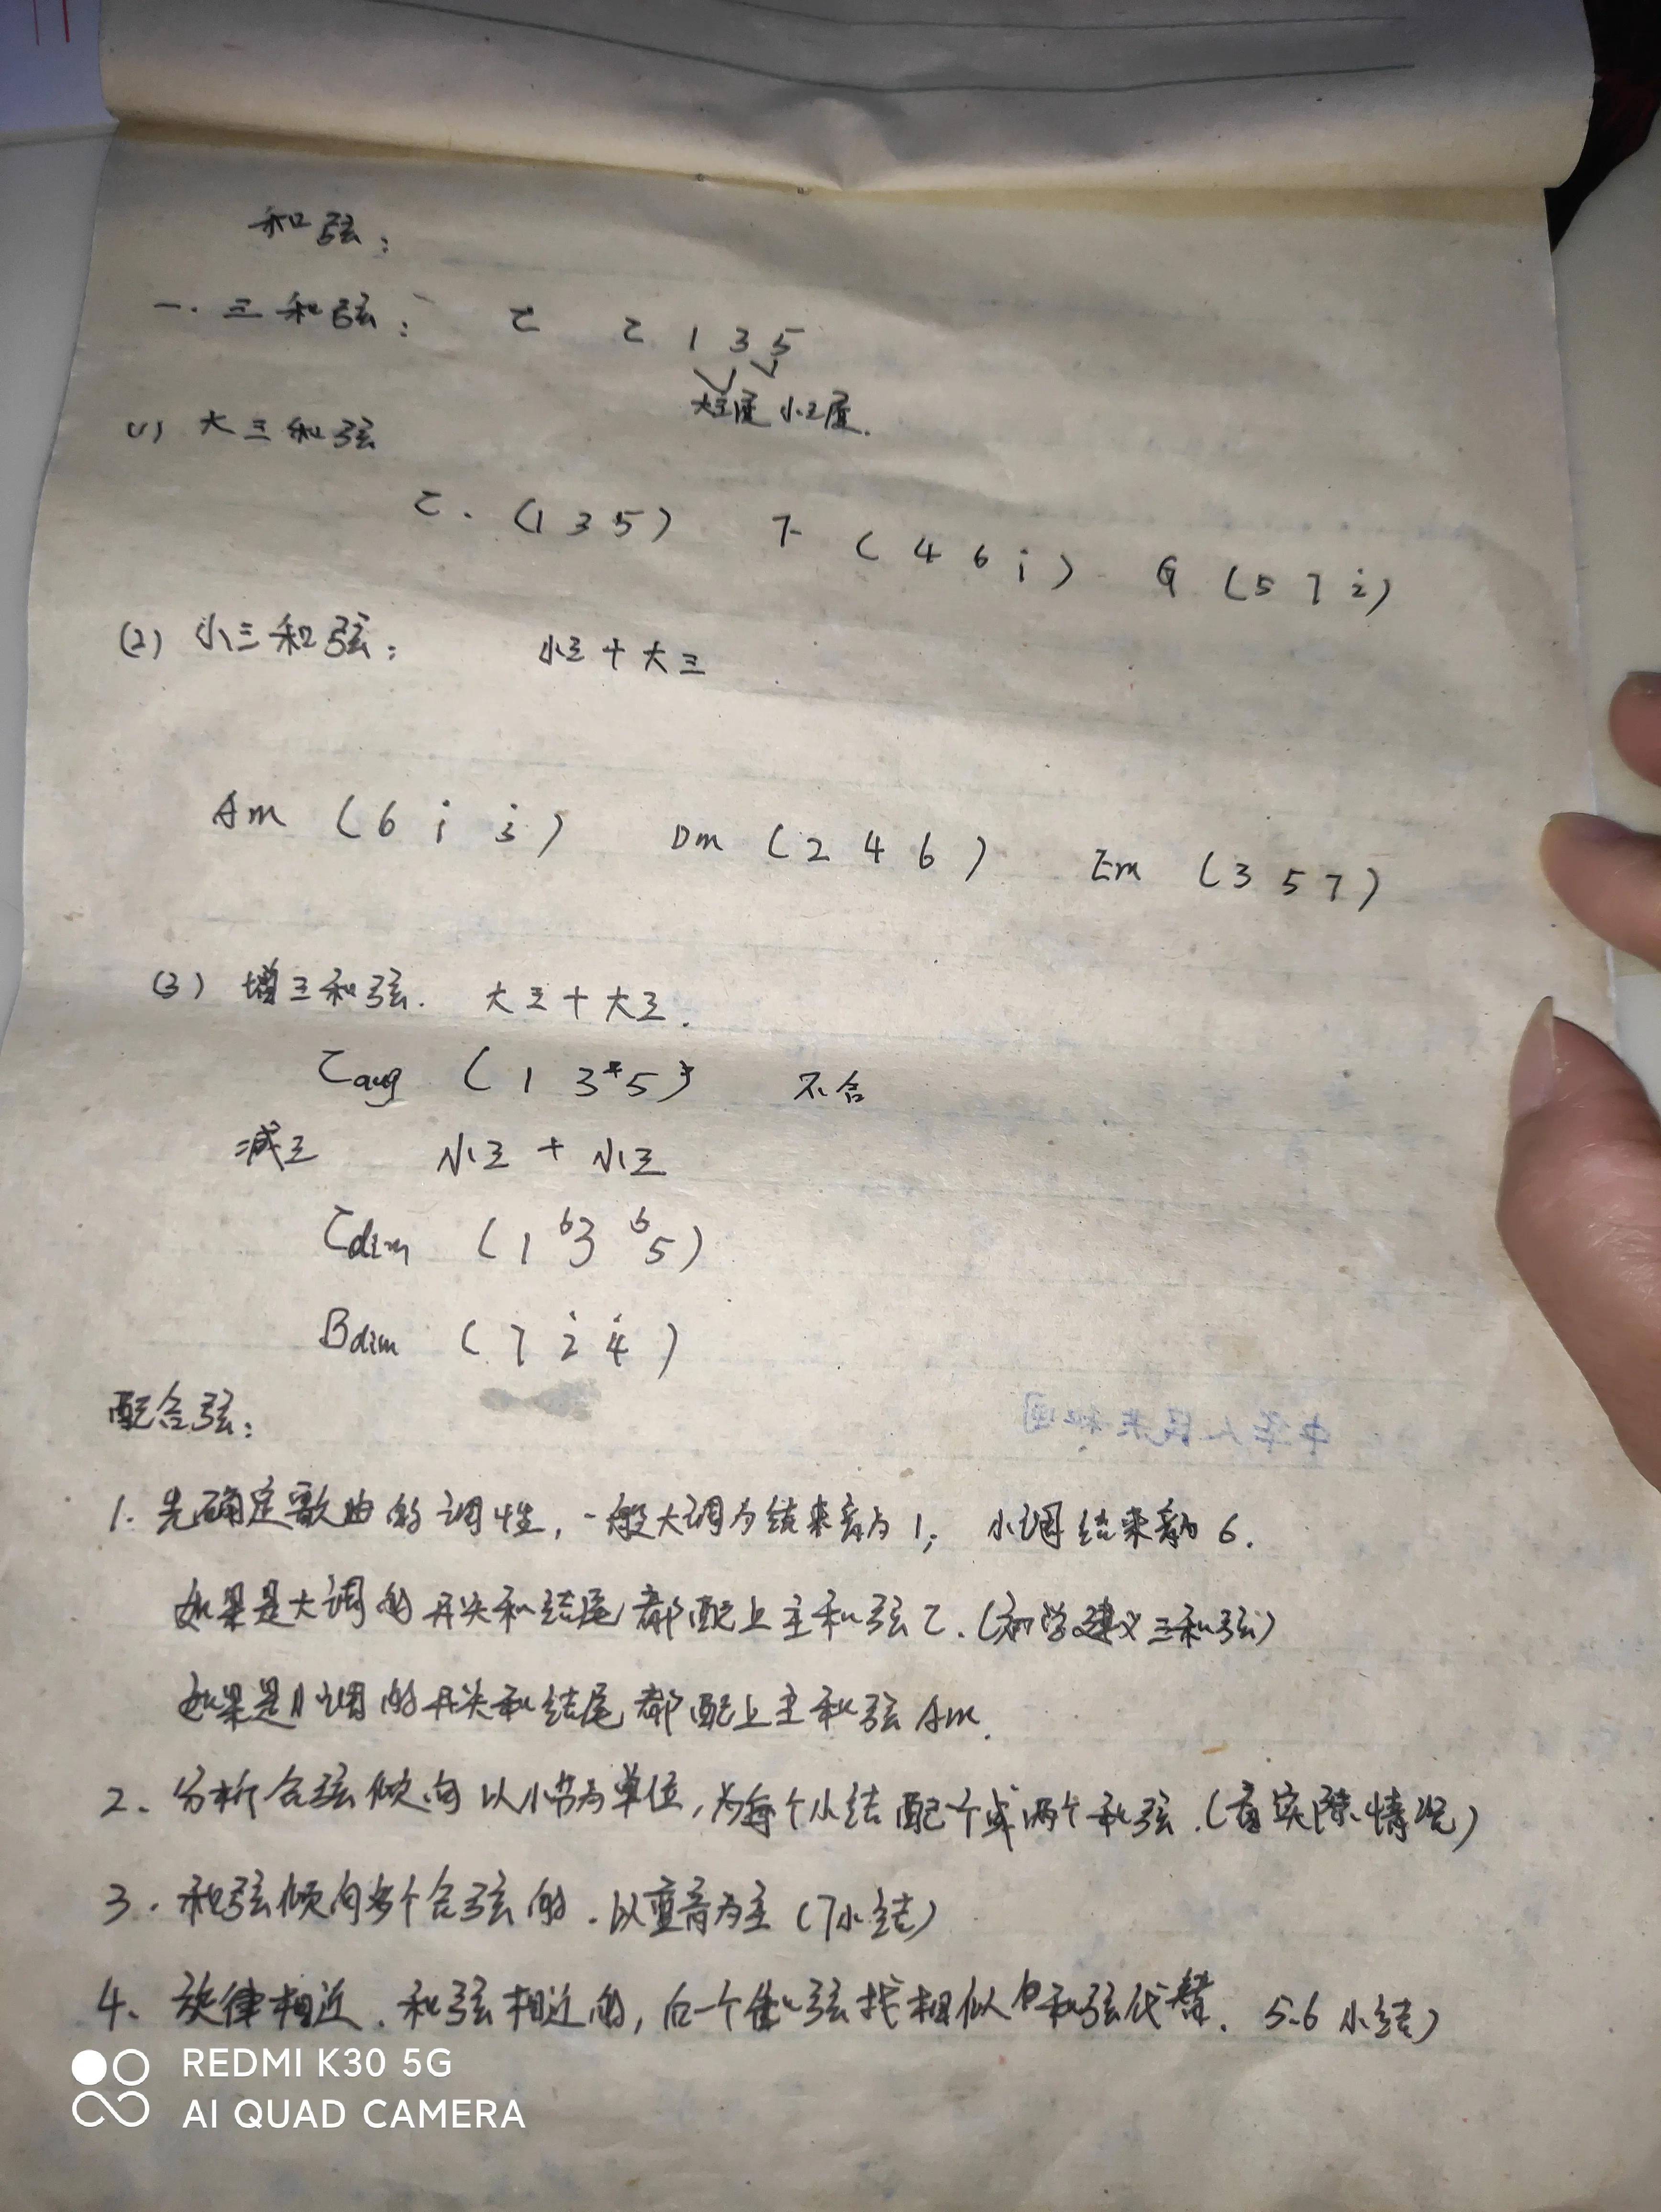 和弦：
一.三和弦： C C 1 3 5
大三度 小三度.
(1) 大三和弦
C. (1 3 5) F (4 6 i) G (5 7 2̇)
(2) 小三和弦： 小三+大三
Am (6 i 3̇) Dm (2 4 6) Em (3 5 7)
(3) 增三和弦. 大三+大三.
Caug (1 3 #5) 不合
减三 小三+小三
Cdim (1 b3 b5)
Bdim (7 2̇ 4̇)
配合弦：
1. 先确定歌曲的调性,一般大调为结束音为1; 小调结束音为6.
如果是大调的开头和结尾都配上主和弦C.(初学建议三和弦)
如果是小调的开头和结尾都配上主和弦Am.
2、分析合弦倾向以小节为单位,为每个小结配一个或两个和弦.(看实际情况)
3.和弦倾向多个合弦的.以重音为主(7小结)
4、旋律相近.和弦相近的,后一个和弦找相似的和弦代替. 5.6小结)
中华人民共和国
REDMI K30 5G
AI QUAD CAMERA